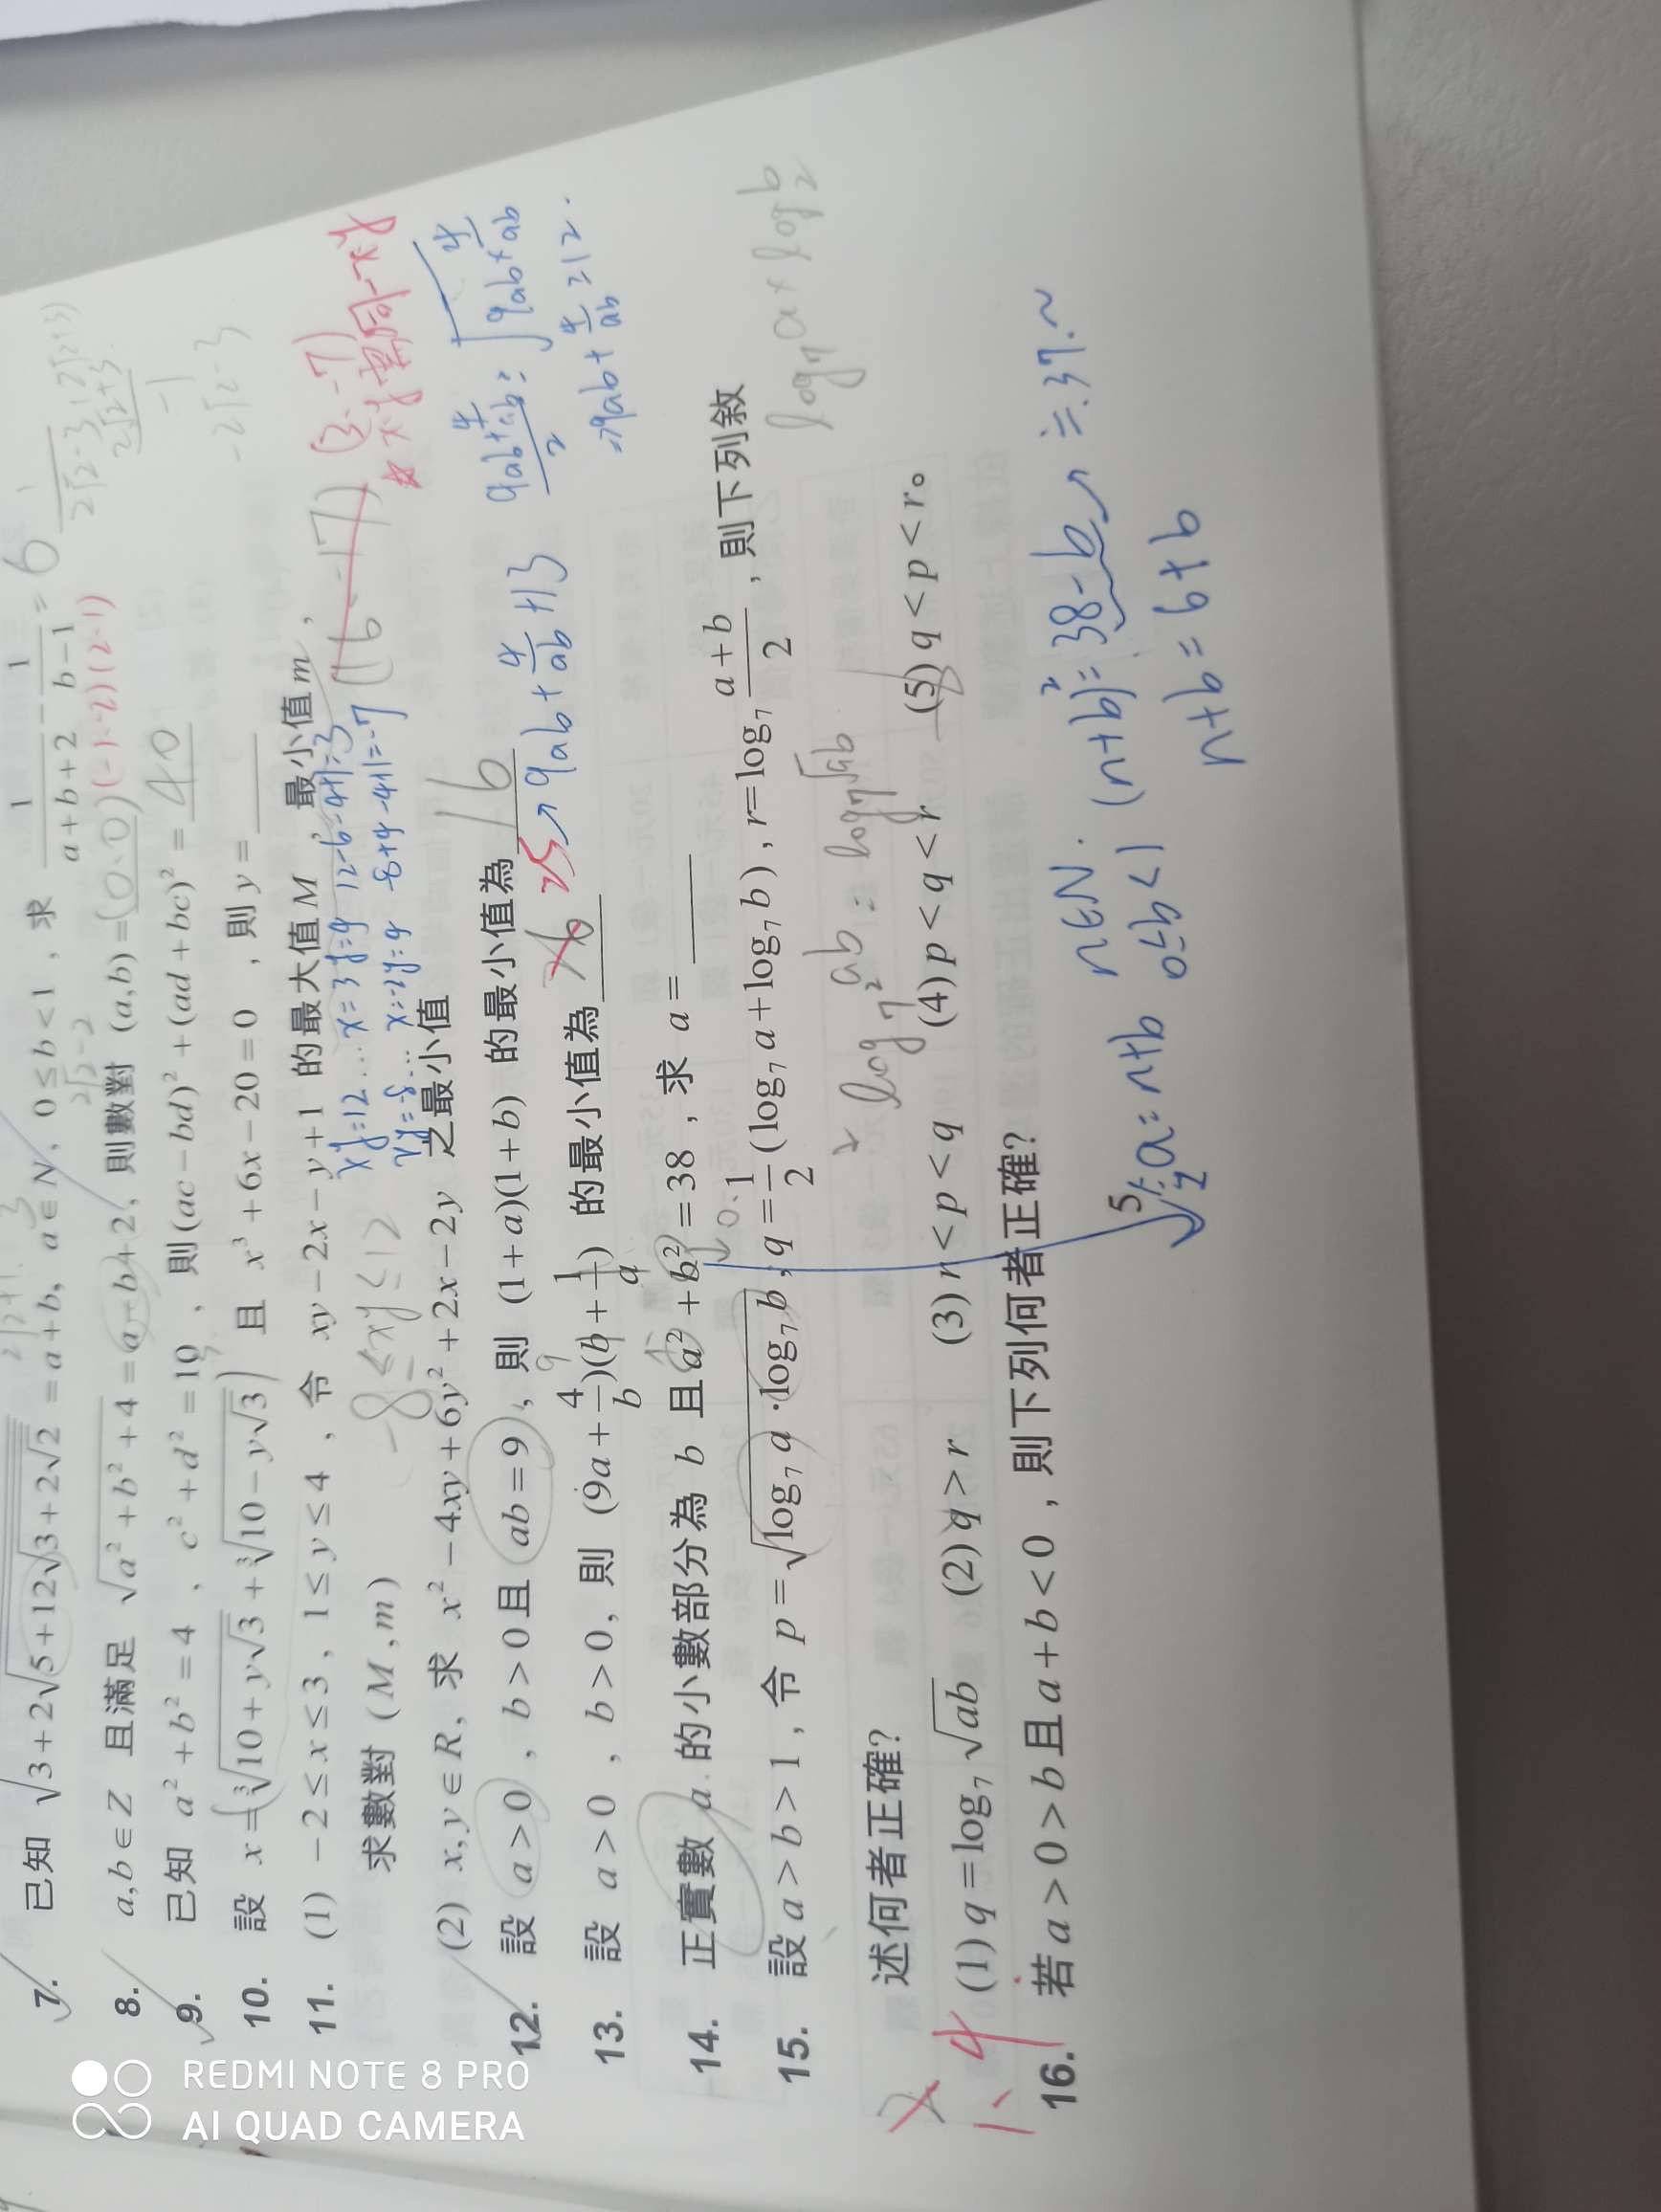 7. 已知 √3+2√5+12√3+2√2 = a+b, a∈N, 0≤b<1,求 1/(a+b+2) - 1/(b-1) = 6
8. a,b∈Z 且滿足 √a²+b²+4 = a-b+2,則數對 (a,b) = (0,0) (-1,-2) (2,1)
9. 已知 a²+b²=4、c²+d²=10、則(ac-bd)²+(ad+bc)² = 40
10. 設 x=∛10+y√3+∛10-y√3 且 x³+6x-20=0,則 y=
11. (1) -2≤x≤3, 1≤y≤4,令 xy-2x-y+1 的最大值M,最小值m,
求數對 (M,m)
-8≤xy≤12
xy=12... x=3 y=4 12-6-4+1=3
xy=-8... x=-2 y=4 -8+4-4+1=-7
(16,-17) (3,-7)
(2) x,y∈R,求 x²-4xy+6y²+2x-2y 之最小值
12. 設 a>0,b>0且 ab=9,則 (1+a)(1+b) 的最小值為 16
13. 設 a>0,b>0,則 (9a+4/b)(b+1/a) 的最小值為 25 → 9ab+4/ab+13
⇒9ab+4/ab≥12.
14. 正實數 a 的小數部分為 b 且 a²+b²=38,求 a=
15. 設 a>b>1,令 p=√log₇a·log₇b,q=1/2(log₇a+log₇b),r=log₇ (a+b)/2,則下列敘
述何者正確?
log₇ab = log₇√ab
(1)q=log₇√ab (2)q>r (3)r<p<q (4)p<q<r (5)q<p<r。
1、4
16. 若 a>0>b且a+b<0,則下列何者正確?
a=n+b n∈N.
0≤b<1
(n+b)²=38-b
n+b=6+b
REDMI NOTE 8 PRO
AI QUAD CAMERA